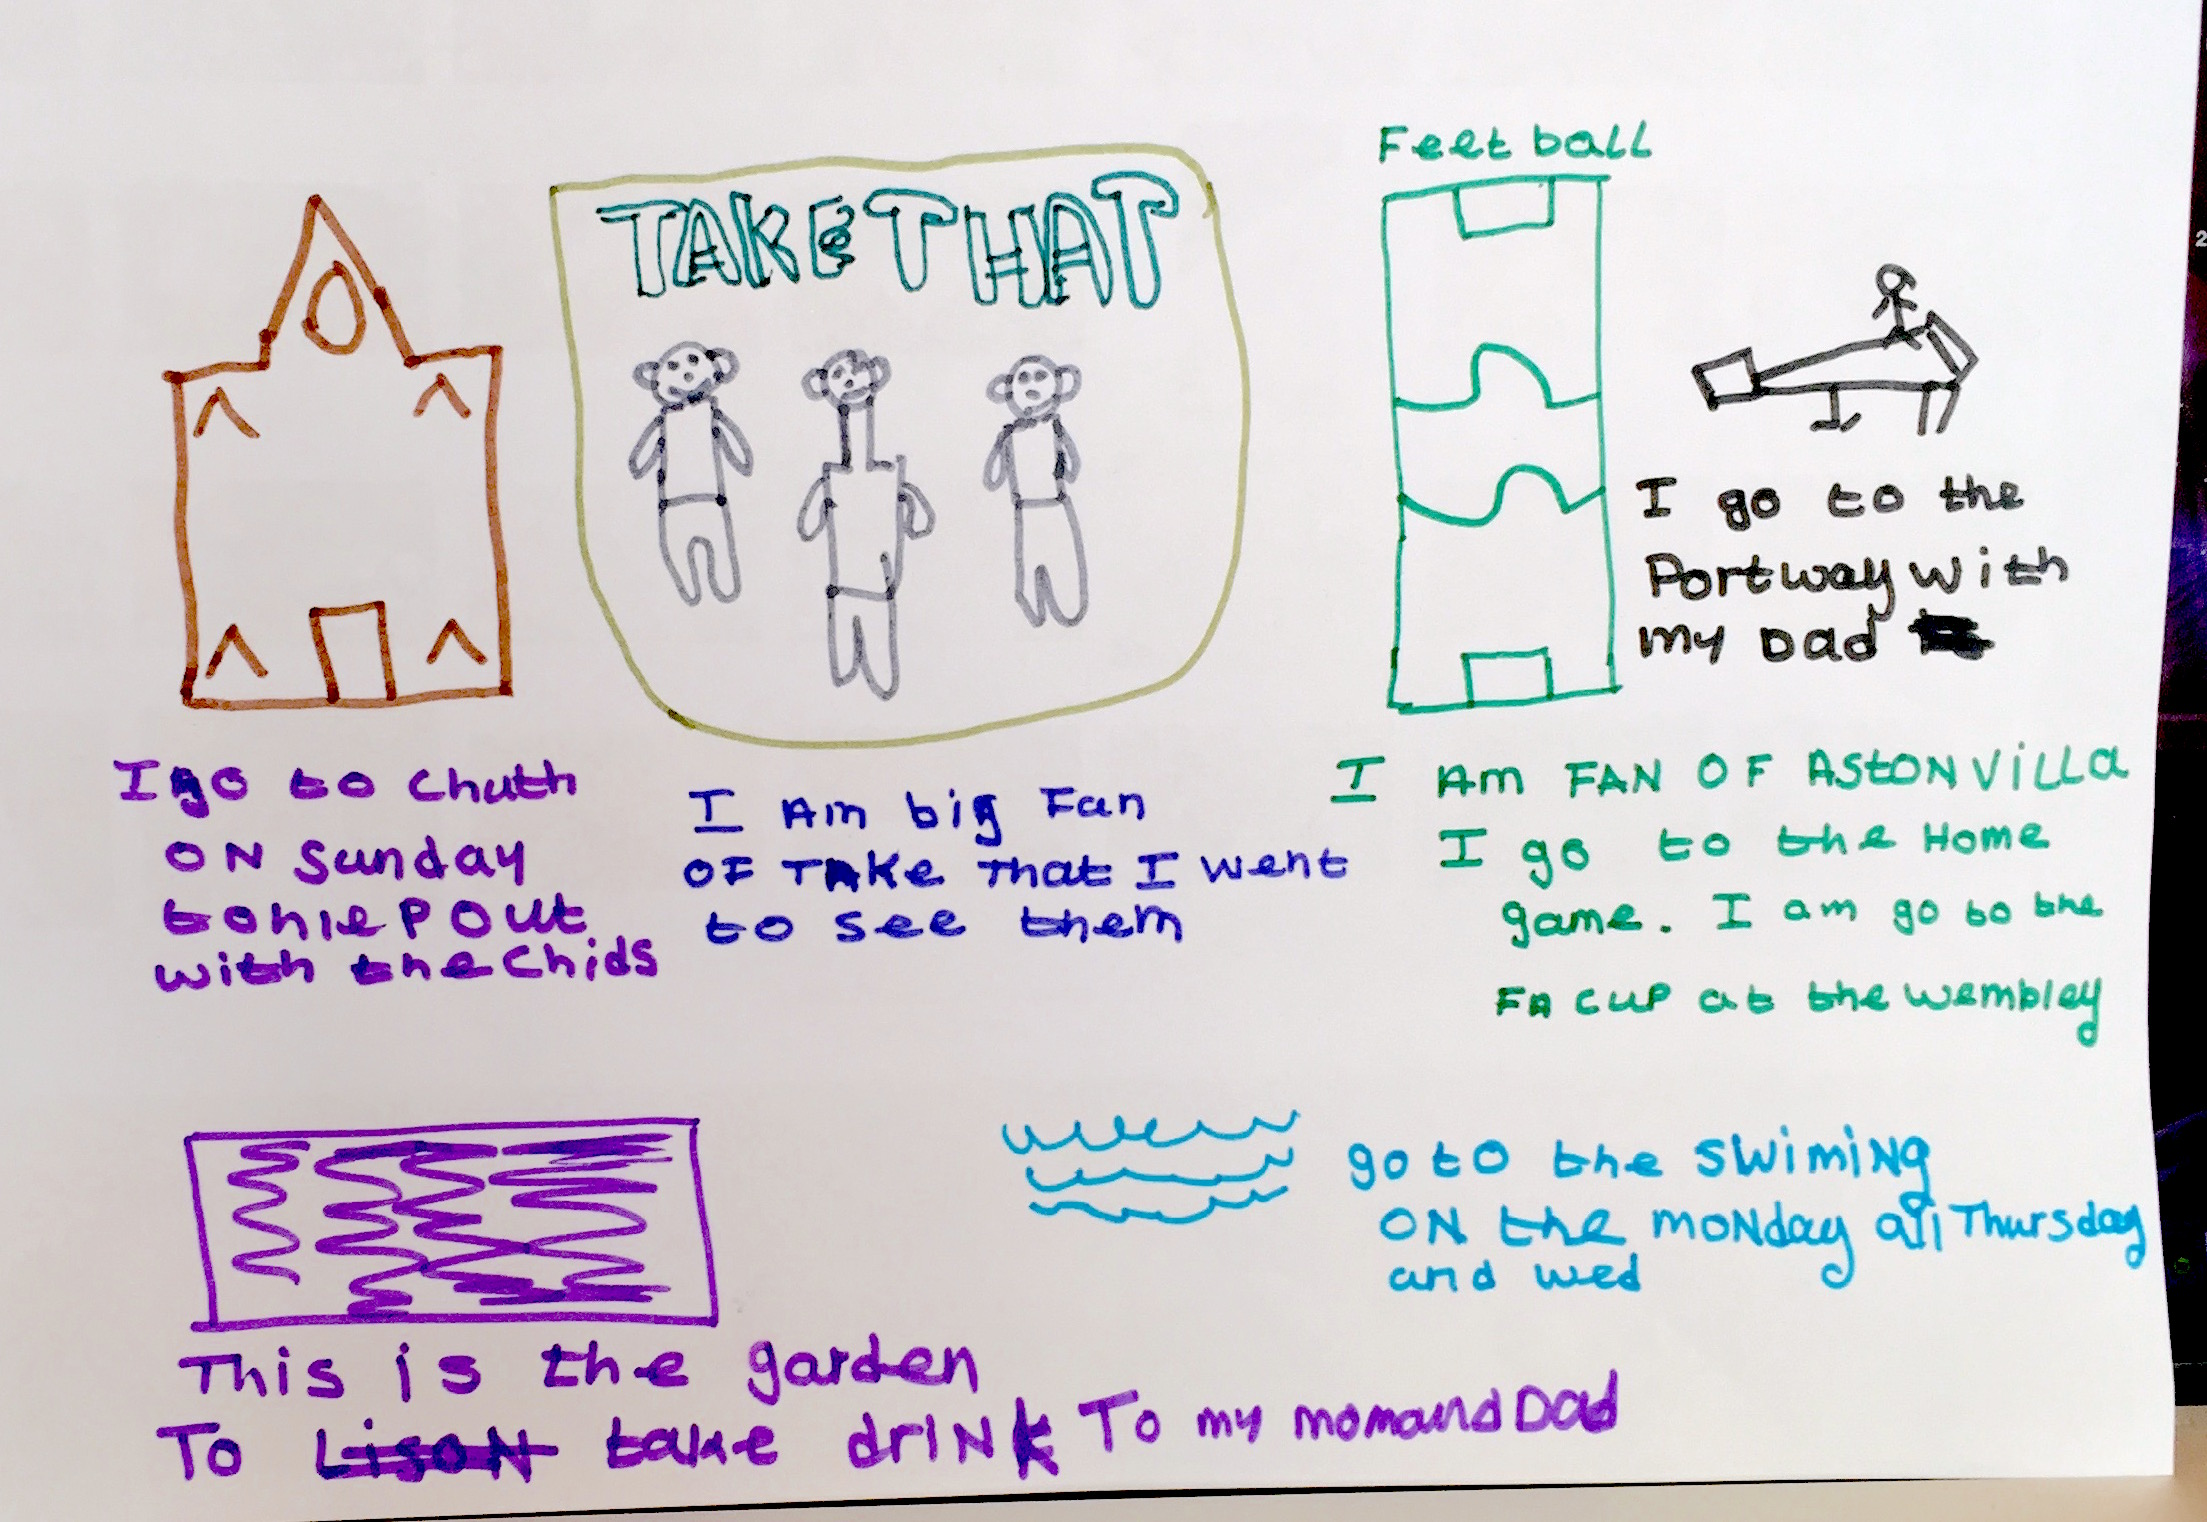 TAKE THAT
Feetball
I go to the
Portway with
my Dad
I go to Chuth
ON Sunday
to hlep out
with the Chids
I Am big Fan
OF TAKe That I went
to see them
I Am FAN OF AStON ViLLa
I go to the Home
game. I am go to the
FA CUP at the wembley
go to the SWimiNg
ON the moNday all Thursday
and wed
This is the garden
To LisoN take drINk To my mom and Dad